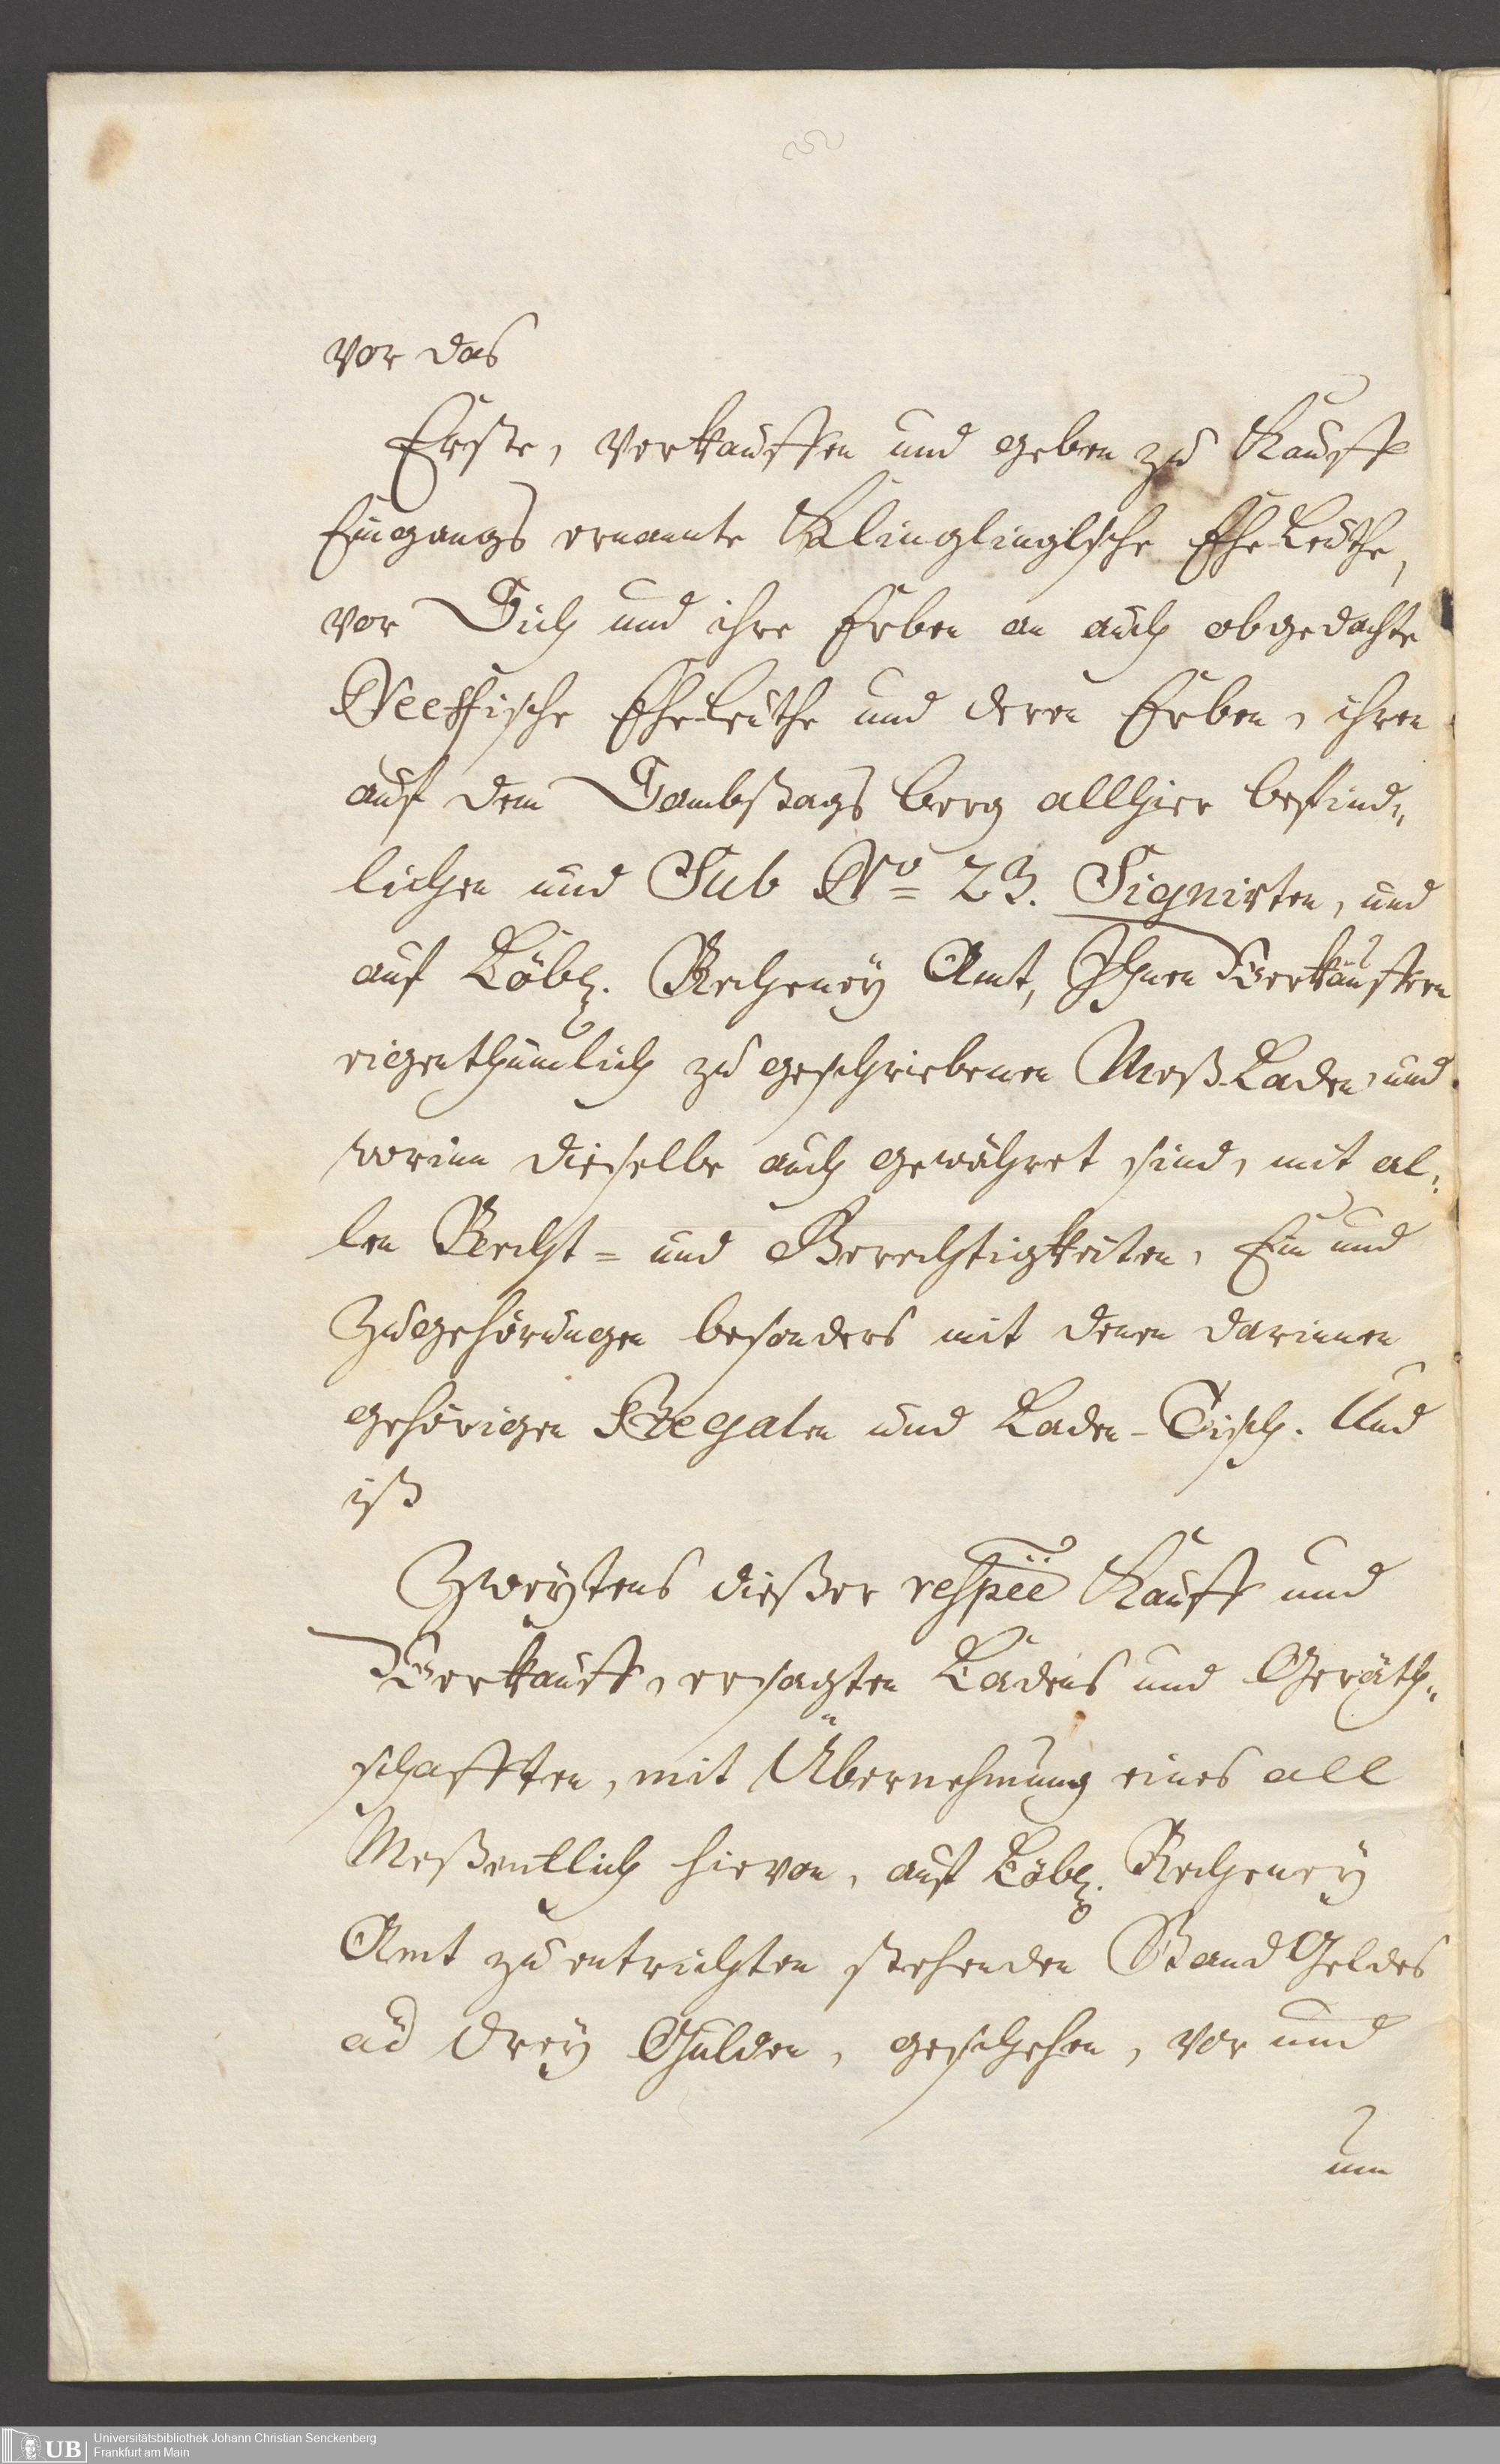 vor das
Erste, verkauffen und geben zu Kauff
Eingangs ernannte Klinglinglsche EheLeuthe,
vor Sich und ihre Erben an auch obgedachte
Neeffische EheLeuthe und deren Erben, ihren
auf dem Sambstags berg allhier befind„
lichen und Sub No 23. Signirten, und
auf Löbl. Recheney Amt, Ihnen Verkäuffern
eigenthümlich zu geschriebenen Meß-Laden, und
worinn dieselbe auch gewähret sind, mit al„
len Recht= und Gerechtigkeiten, Ein und
Zugehörungen besonders mit denen darinnen
gehörigen Regalen und Laden-Tisch. Und
ist
Zweytens dießer respée Kauff und
Verkauff, ersagten Ladens und Geräth„
schafften, mit Übernehmung eines all
Meßentlich hievon, auf Löbl. Recheney
Amt zu entrichten stehenden Stand Geldes
ad drey Gulden, geschehen, vor und
um
Universitätsbibliothek Johann Christian Senckenberg
UB Frankfurt am Main